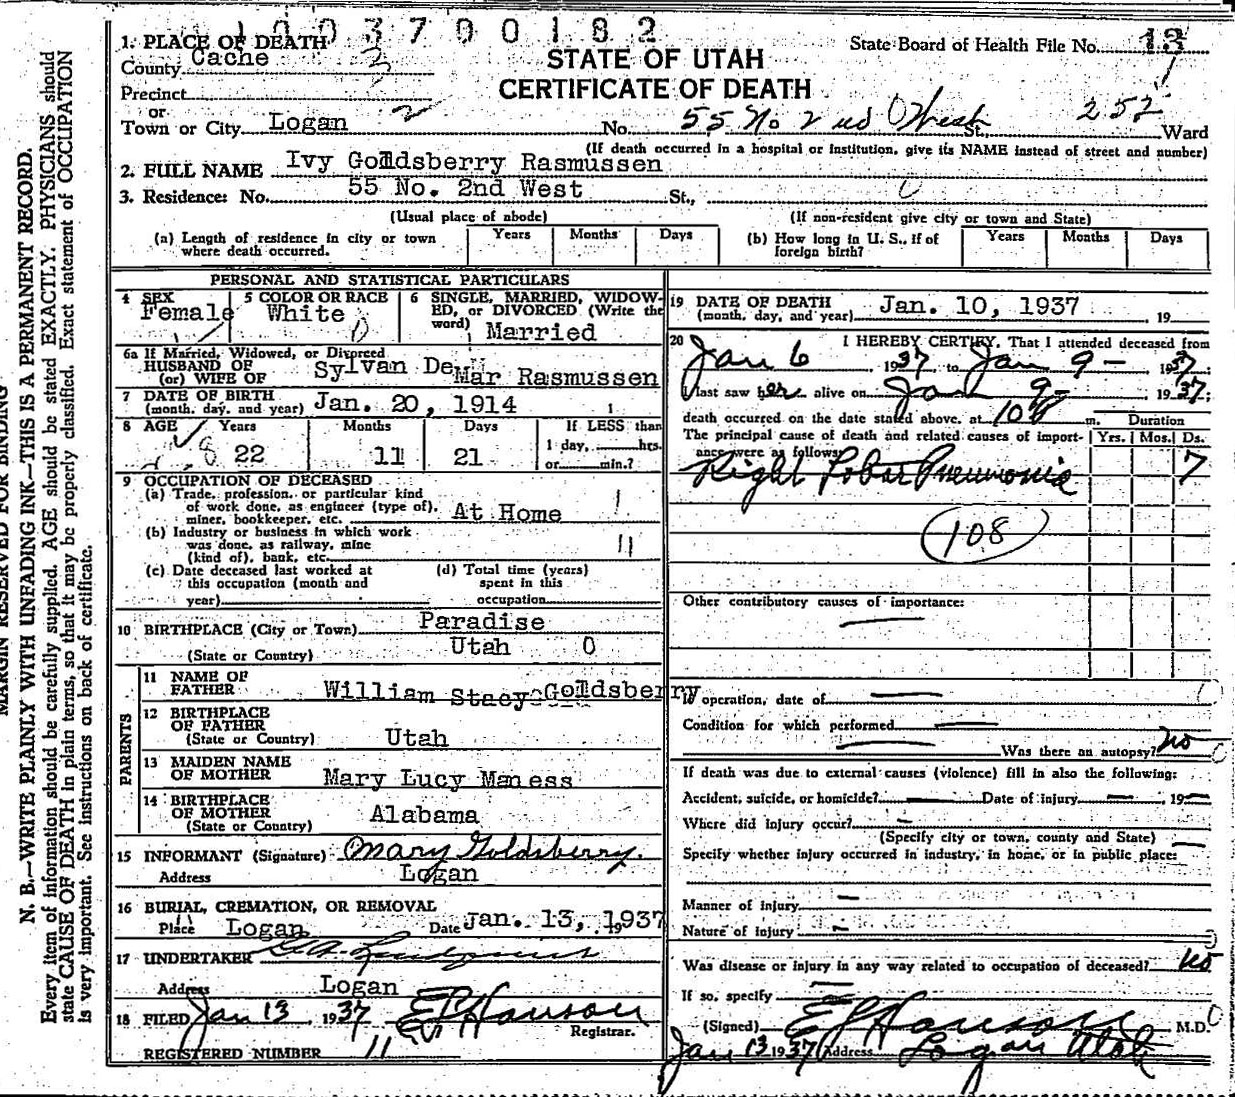 1003700182
1. PLACE OF DEATH
County Cache 3
STATE OF UTAH
CERTIFICATE OF DEATH
State Board of Health File No. 13
Precinct
or
Town or City Logan 2 No. 55 No 2nd West St., 252 Ward
(If death occurred in a hospital or institution, give its NAME instead of street and number)
2. FULL NAME Ivy Goldsberry Rasmussen
3. Residence: No. 55 No. 2nd West St.,
(Usual place of abode) (If non-resident give city or town and State)
(a) Length of residence in city or town where death occurred. Years Months Days (b) How long in U. S., if of foreign birth? Years Months Days
PERSONAL AND STATISTICAL PARTICULARS
4 SEX Female
5 COLOR OR RACE White
6 SINGLE, MARRIED, WIDOWED, OR DIVORCED (Write the word) Married
6a If Married, Widowed, or Divorced
HUSBAND OF
(or) WIFE OF Sylvan DeMar Rasmussen
7 DATE OF BIRTH
(month, day, and year) Jan. 20, 1914
8 AGE Years 22 Months 11 Days 21 If LESS than
1 day, hrs.
or min.?
9 OCCUPATION OF DECEASED
(a) Trade, profession, or particular kind
of work done, as engineer (type of),
miner, bookkeeper, etc. At Home
(b) Industry or business in which work
was done, as railway, mine
(kind of), bank, etc. 11
(c) Date deceased last worked at
this occupation (month and
year)
(d) Total time (years)
spent in this
occupation
10 BIRTHPLACE (City or Town) Paradise
(State or Country) Utah 0
PARENTS
11 NAME OF
FATHER William Stacy Goldsberry
12 BIRTHPLACE
OF FATHER
(State or Country) Utah
13 MAIDEN NAME
OF MOTHER Mary Lucy Maness
14 BIRTHPLACE
OF MOTHER
(State or Country) Alabama
15 INFORMANT (Signature) Mary Goldsberry.
Address Logan
16 BURIAL, CREMATION, OR REMOVAL
Place Logan Date Jan. 13, 1937
17 UNDERTAKER
Address Logan
18 FILED Jan 13, 1937 E L Hanson
Registrar.
REGISTERED NUMBER 11
19 DATE OF DEATH
(month, day, and year) Jan. 10, 1937 19
20 I HEREBY CERTIFY, That I attended deceased from
Jan 6, 1937 to Jan 9 - 1937;
I last saw her alive on Jan 9 - 1937;
death occurred on the date stated above, at 10 P m. Duration
The principal cause of death and related causes of importance were as follows: Yrs. Mos. Ds.
Right Lobar Pneumonia 7
108
Other contributory causes of importance:
If operation, date of
Condition for which performed
Was there an autopsy? no
If death was due to external causes (violence) fill in also the following:
Accident, suicide, or homicide? Date of injury 19
Where did injury occur?
(Specify city or town, county and State)
Specify whether injury occurred in industry, in home, or in public place:
Manner of injury
Nature of injury
Was disease or injury in any way related to occupation of deceased? no
If so, specify
(Signed) E L Hanson M.D.
Jan 13 1937 Address Logan Utah
MARGIN RESERVED FOR BINDING
N. B.—WRITE PLAINLY WITH UNFADING INK—THIS IS A PERMANENT RECORD.
Every item of information should be carefully supplied. AGE should be stated EXACTLY. PHYSICIANS should
state CAUSE OF DEATH in plain terms, so that it may be properly classified. Exact statement of OCCUPATION
is very important. See instructions on back of certificate.